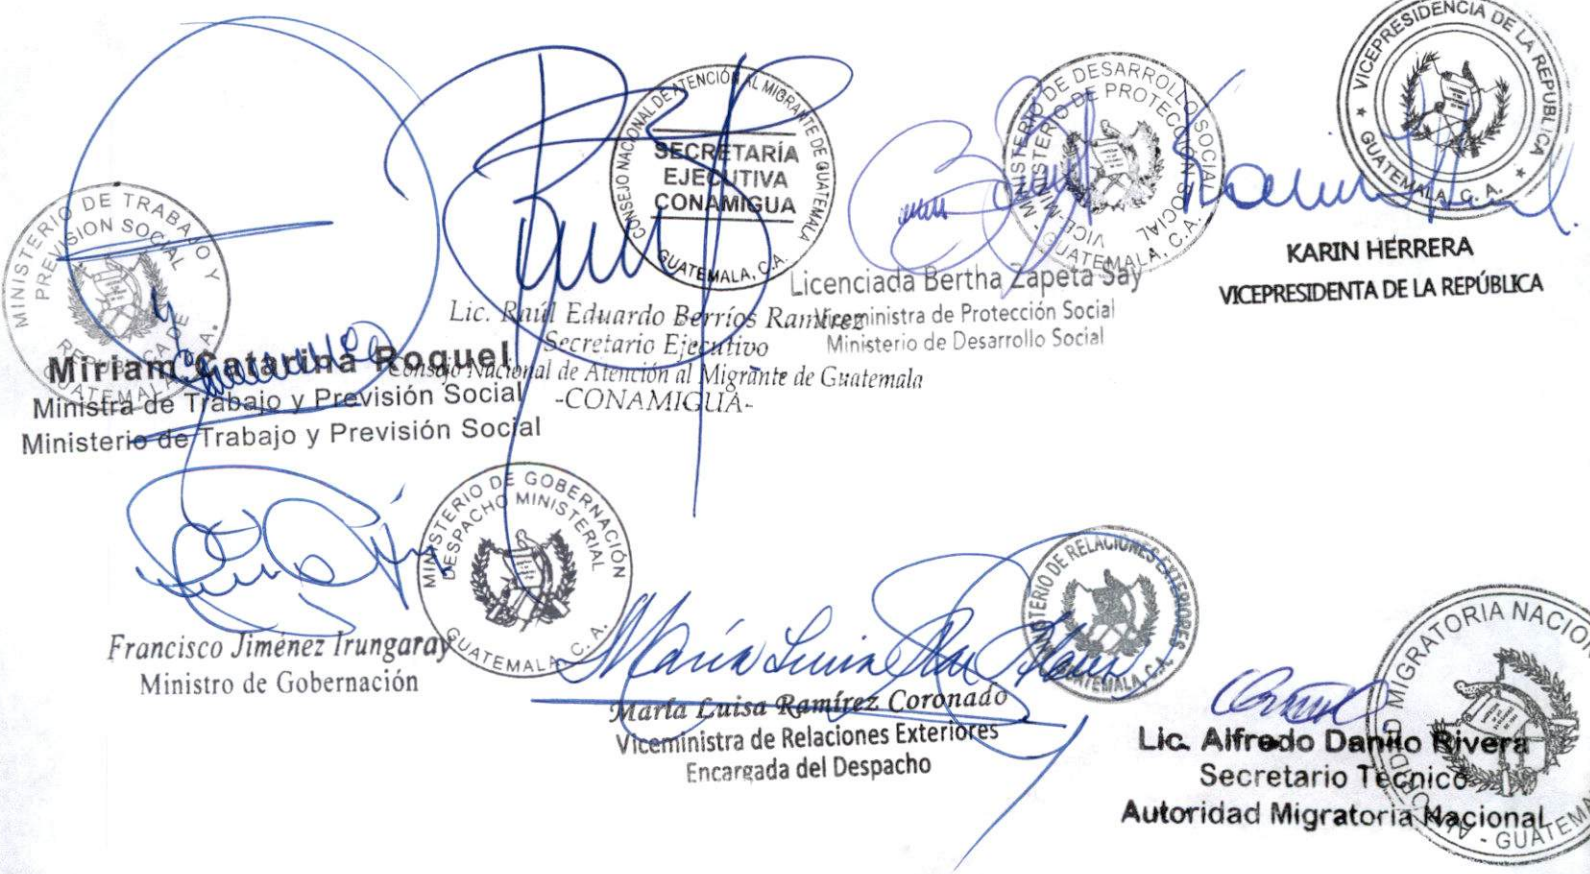 MINISTERIO DE TRABAJO Y
PREVISION SOCIAL
REPUBLICA DE
GUATEMALA, C. A.
Miriam Catarina Roquel
Ministra de Trabajo y Previsión Social
Ministerio de Trabajo y Previsión Social
CONSEJO NACIONAL DE ATENCIÓN AL MIGRANTE DE GUATEMALA
SECRETARÍA
EJECUTIVA
CONAMIGUA
GUATEMALA, C.A.
Lic. Raúl Eduardo Berríos Ramírez
Secretario Ejecutivo
Consejo Nacional de Atención al Migrante de Guatemala
-CONAMIGUA-
MINISTERIO DE DESARROLLO SOCIAL
VICE MINISTERIO DE PROTECCIÓN SOCIAL
GUATEMALA, C.A.
Licenciada Bertha Zapeta Say
Viceministra de Protección Social
Ministerio de Desarrollo Social
VICEPRESIDENCIA DE LA REPUBLICA
GUATEMALA, C. A.
KARIN HERRERA
VICEPRESIDENTA DE LA REPÚBLICA
MINISTERIO DE GOBERNACIÓN
DESPACHO MINISTERIAL
GUATEMALA, C. A.
Francisco Jiménez Irungaray
Ministro de Gobernación
MINISTERIO DE RELACIONES EXTERIORES
GUATEMALA, C.A.
María Luisa
María Luisa Ramírez Coronado
Viceministra de Relaciones Exteriores
Encargada del Despacho
MIGRATORIA NACIO
GUATEMA
Lic. Alfredo Danilo Rivera
Secretario Técnico
Autoridad Migratoria Nacional